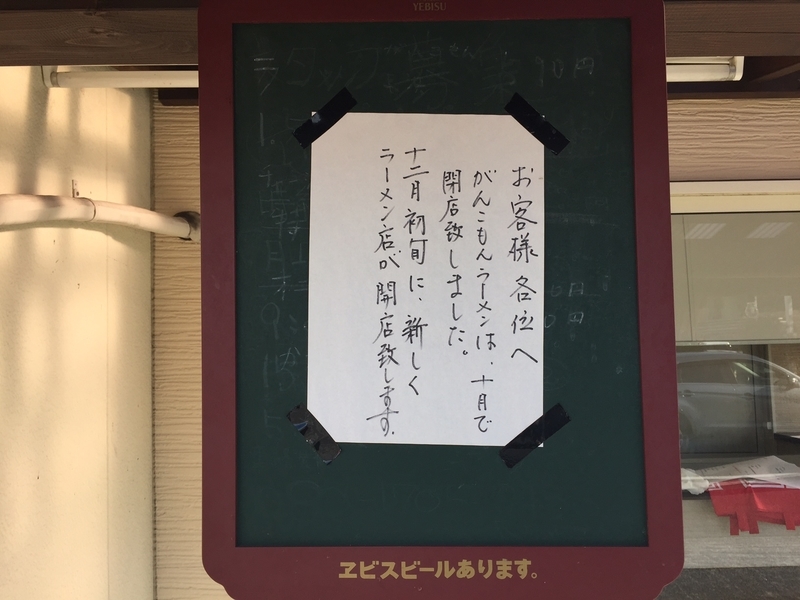 YEBISU
お客様各位へ
がんこもんラーメンは、十月で
閉店致しました。
十二月初旬に、新しく
ラーメン店が開店致します。
ヱビスビールあります。